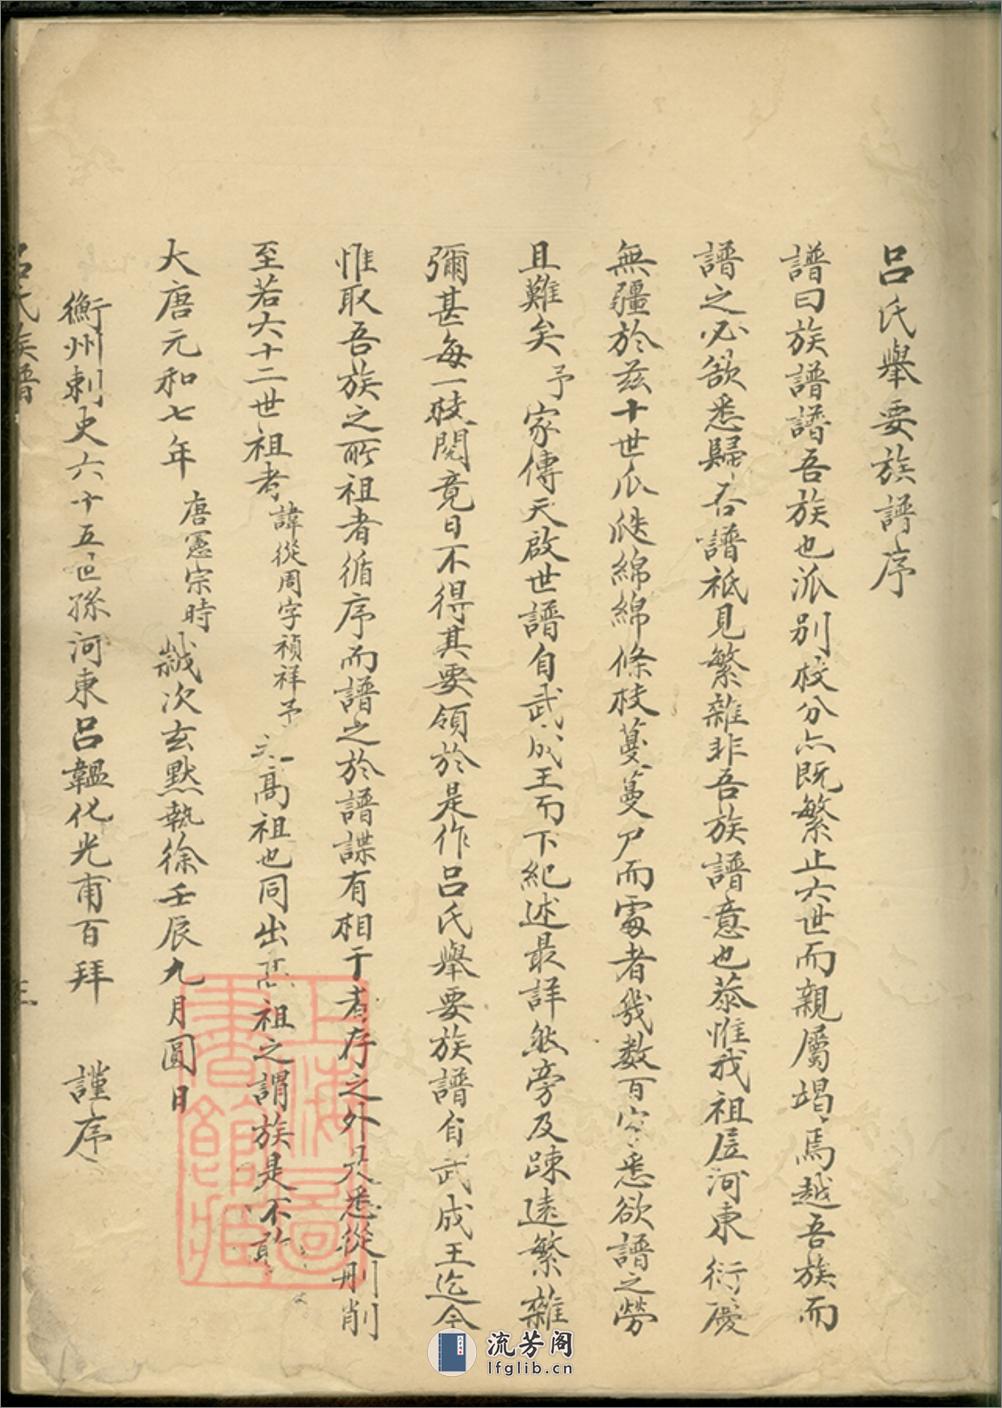 呂氏舉要族譜序
譜曰族譜譜吾族也派別枝分亦既繁止六世而親屬竭焉越吾族而
譜之必欲悉歸吾譜祇見繁雜非吾族譜意也恭惟我祖居河東衍慶
無疆於茲十世瓜瓞綿綿條枝蔓蔓尸而處者幾數百家悉欲譜之勞
且難矣予家傳天啟世譜自武成王而下紀述最詳然旁及踈遠繁雜
彌甚每一披閱竟日不得其要領於是作呂氏舉要族譜自武成王迄今
惟取吾族之所祖者循序而譜之於譜諜有相干者存之外只悉從刪削
至若六十二世祖考諱從周字禎祥予之高祖也同出高祖之謂族是不敢
大唐元和七年唐憲宗時歲次玄默執徐壬辰九月圓日
衡州刺史六十五世孫河東呂韞化光甫百拜 謹序
呂氏族譜
上海圖書館藏
流芳阁
lfglib.cn